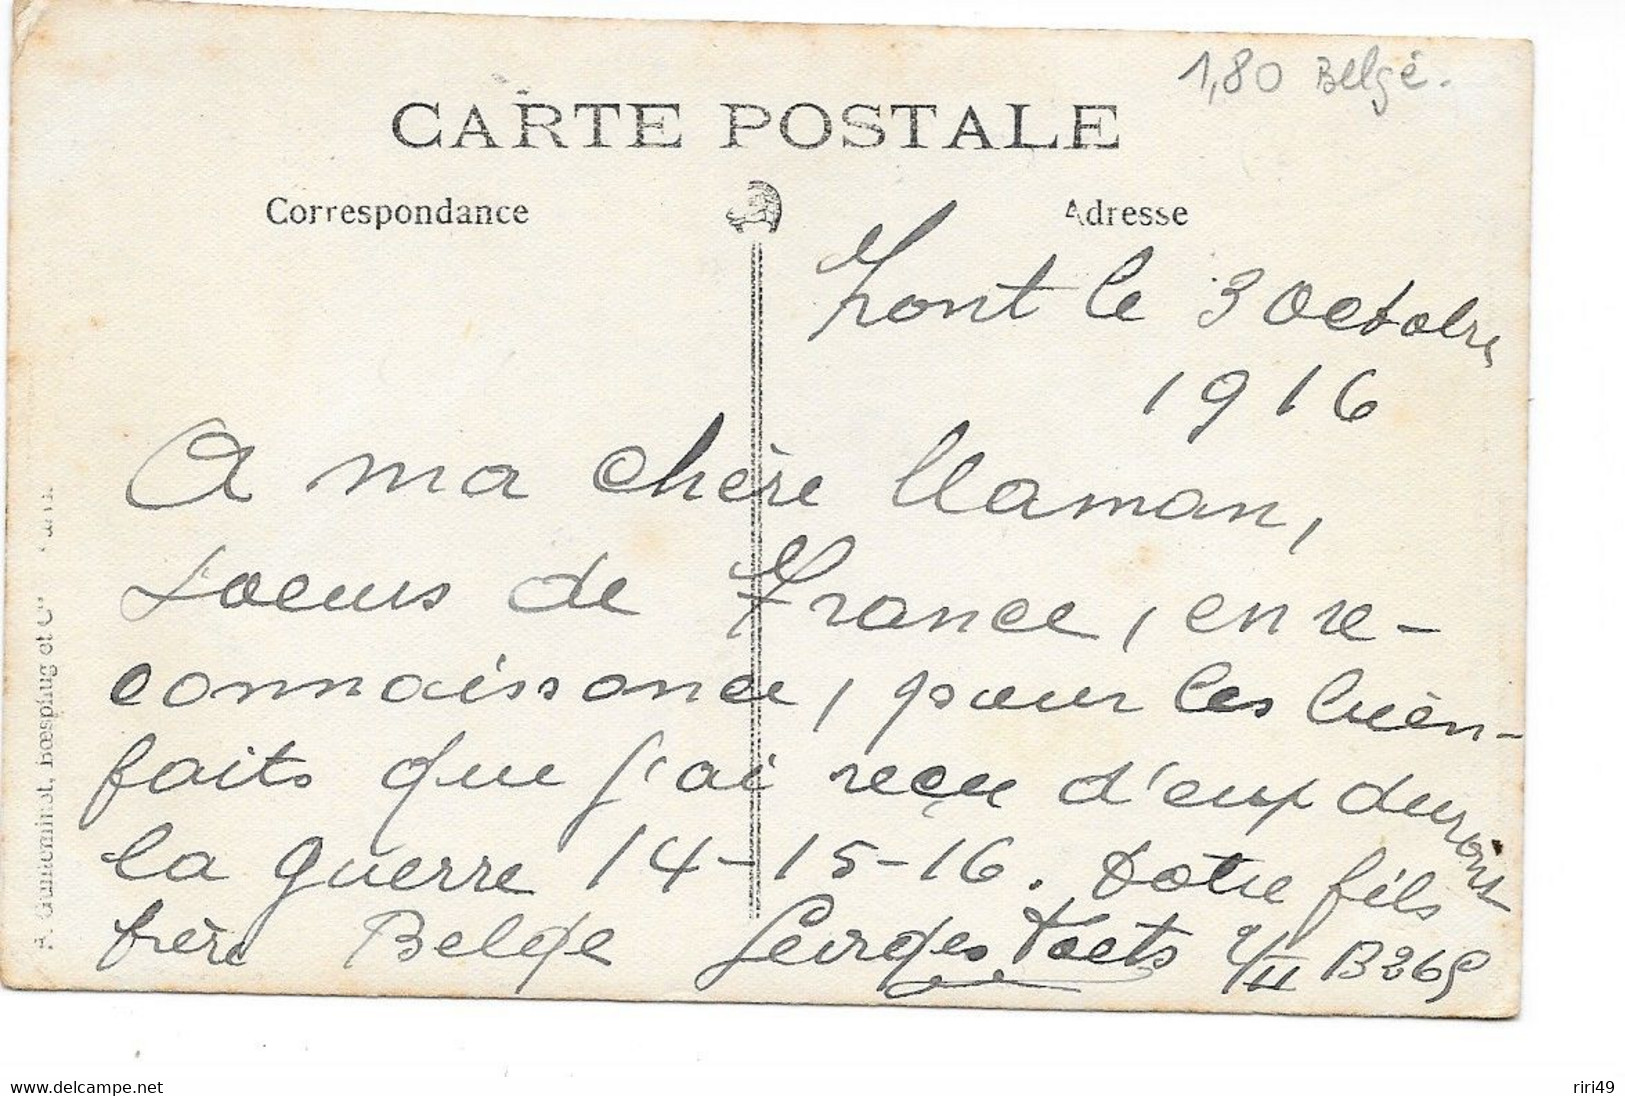 1,80 Belge.
CARTE POSTALE
Correspondance
Adresse
Front le 3 Octobre
1916
A ma chère Maman,
Soeurs de France, en re-
connaissance, pour les bien-
faits que j'ai reçu d'eux durant
la guerre 14-15-16. Votre fils
frère Belge Georges B269
A. Guilleminot, Bœspflug et Cie
www.delcampe.net
riri49